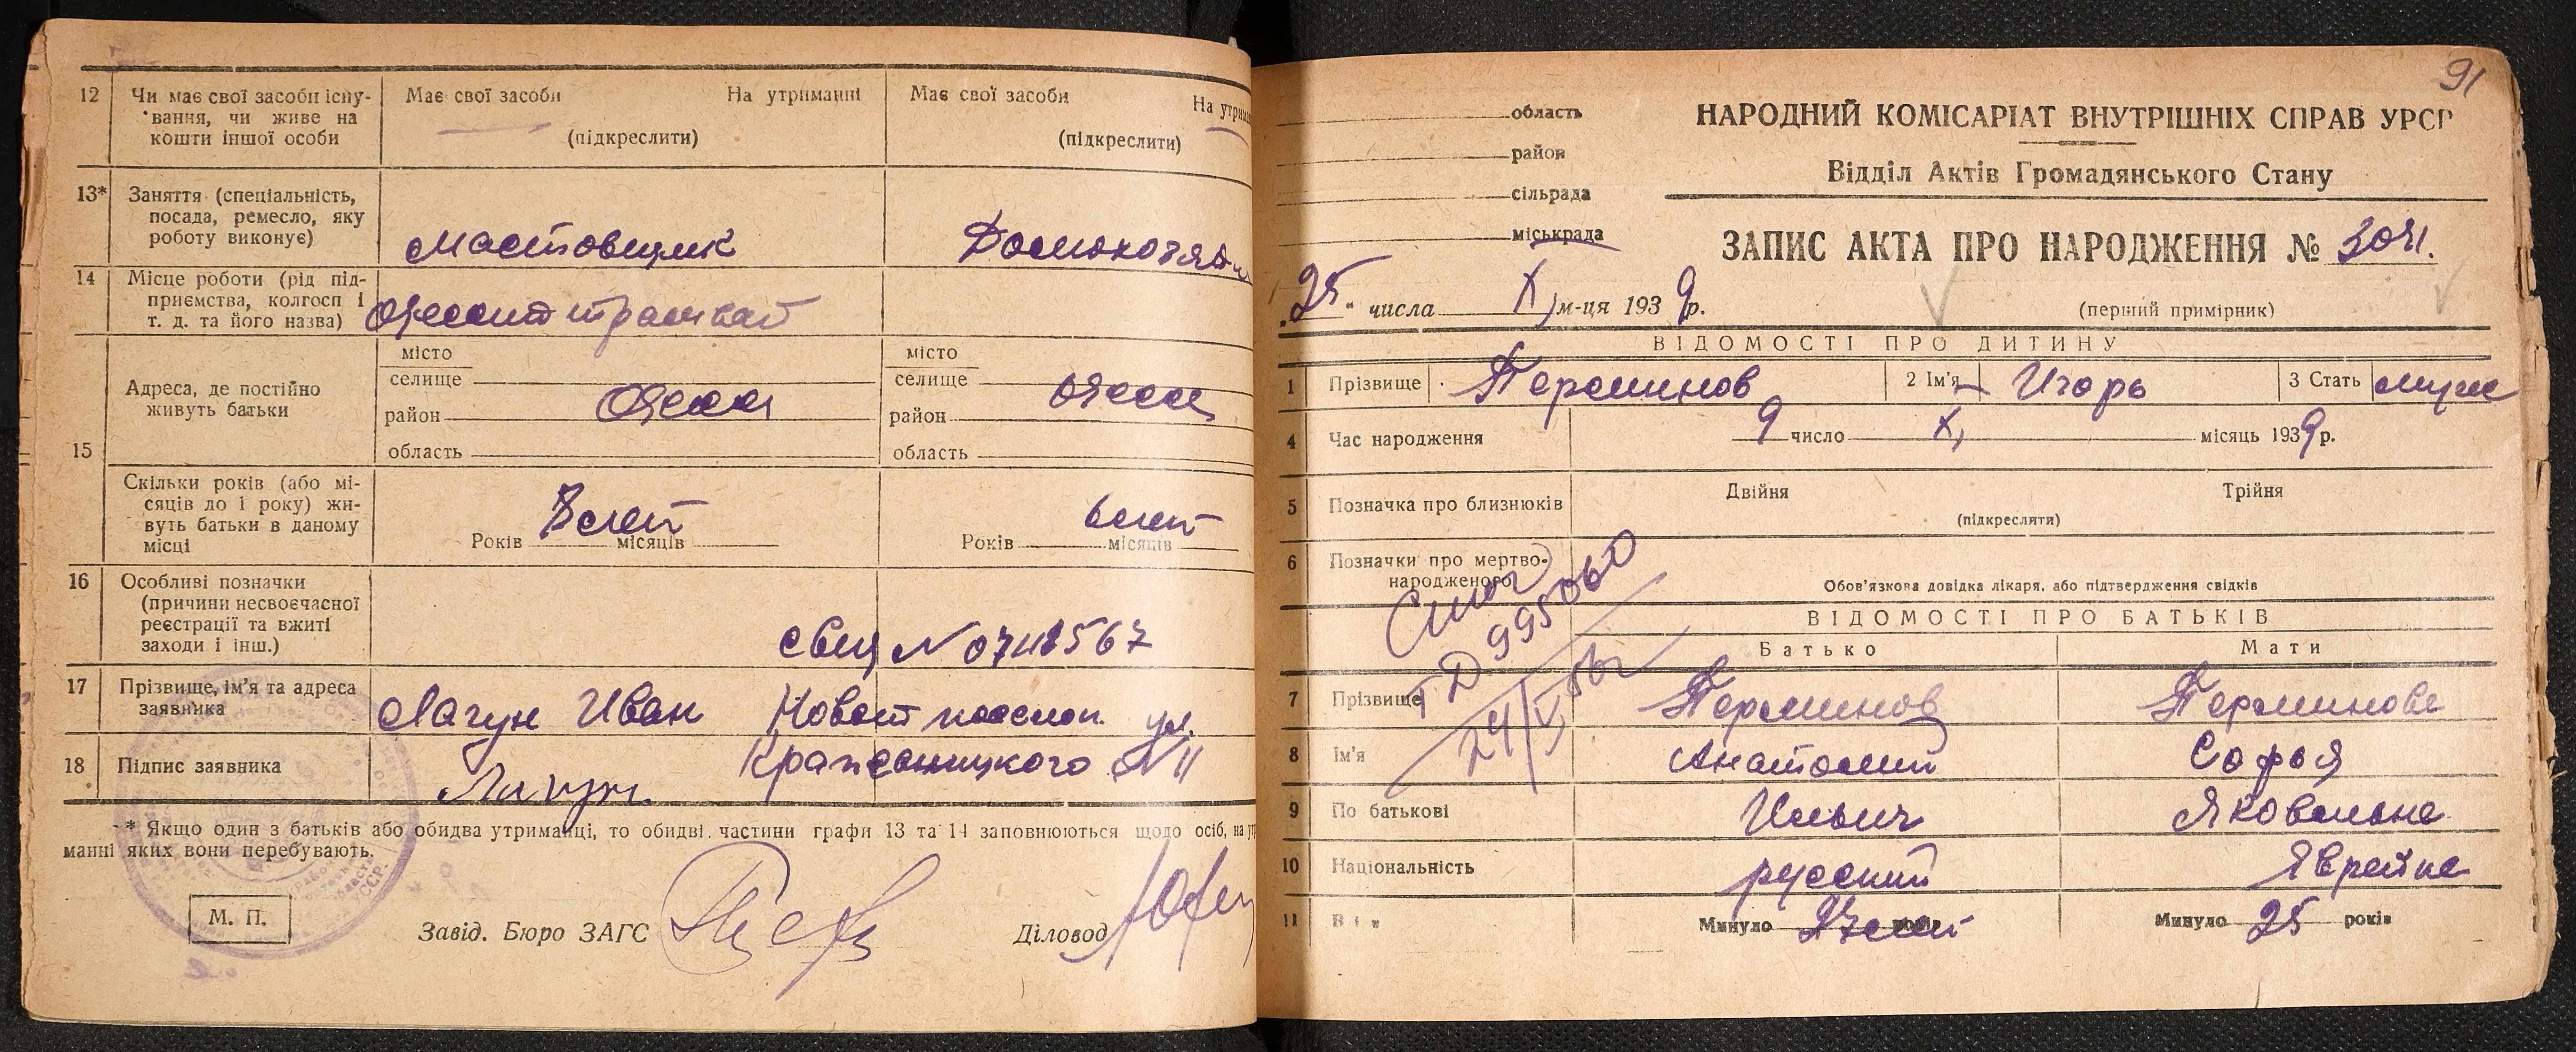 12 Чи має свої засоби існу-
вання, чи живе на
кошти іншої особи
Має свої засоби На утриманні
(підкреслити)
Має свої засоби
(підкреслити)
13* Заняття (спеціальність,
посада, ремесло, яку
роботу виконує)
Мастовщик
14 Місце роботи (рід під-
приємства, колгосп і
т. д. та його назва)
15
Адреса, де постійно
живуть батьки
місто
селище
район
область
Одесса
місто
селище
район
область
Одесса
Скільки років (або мі-
сяців до 1 року) жи-
вуть батьки в даному
місці
Років місяців
Років 6 лет місяців
16 Особливі позначки
(причини несвоєчасної
реєстрації та вжиті
заходи і інш.)
17 Прізвище, ім'я та адреса
заявника
Лагун Иван ул.
№ 11
18 Підпис заявника
Лагун
* Якщо один з батьків або обидва утриманці, то обидві частини графи 13 та 14 заповнюються щодо осіб, на
манні яких вони перебувають.
М. П.
Завід. Бюро ЗАГС
Діловод
91
область
район
сільрада
міськрада
НАРОДНИЙ КОМІСАРІАТ ВНУТРІШНІХ СПРАВ УРСР
Відділ Актів Громадянського Стану
ЗАПИС АКТА ПРО НАРОДЖЕННЯ № 3041.
„25" числа X, м-ця 1939 р.
(перший примірник)
ВІДОМОСТІ ПРО ДИТИНУ
1 Прізвище Перминов 2 Ім'я Игорь 3 Стать
4 Час народження 9 число X, місяць 1939 р.
5 Позначка про близнюків Двійня Трійня
(підкреслити)
6 Позначки про мертво-
народженого
Обов'язкова довідка лікаря, або підтвердження свідків
995060
ВІДОМОСТІ ПРО БАТЬКІВ
Батько Мати
7 Прізвище Перминов Перминова
8 Ім'я Анатолий Софья
9 По батькові Ильич Яковлевна
10 Національність русский Яврейка
11 Вік Минуло 27 лет років Минуло 25 років